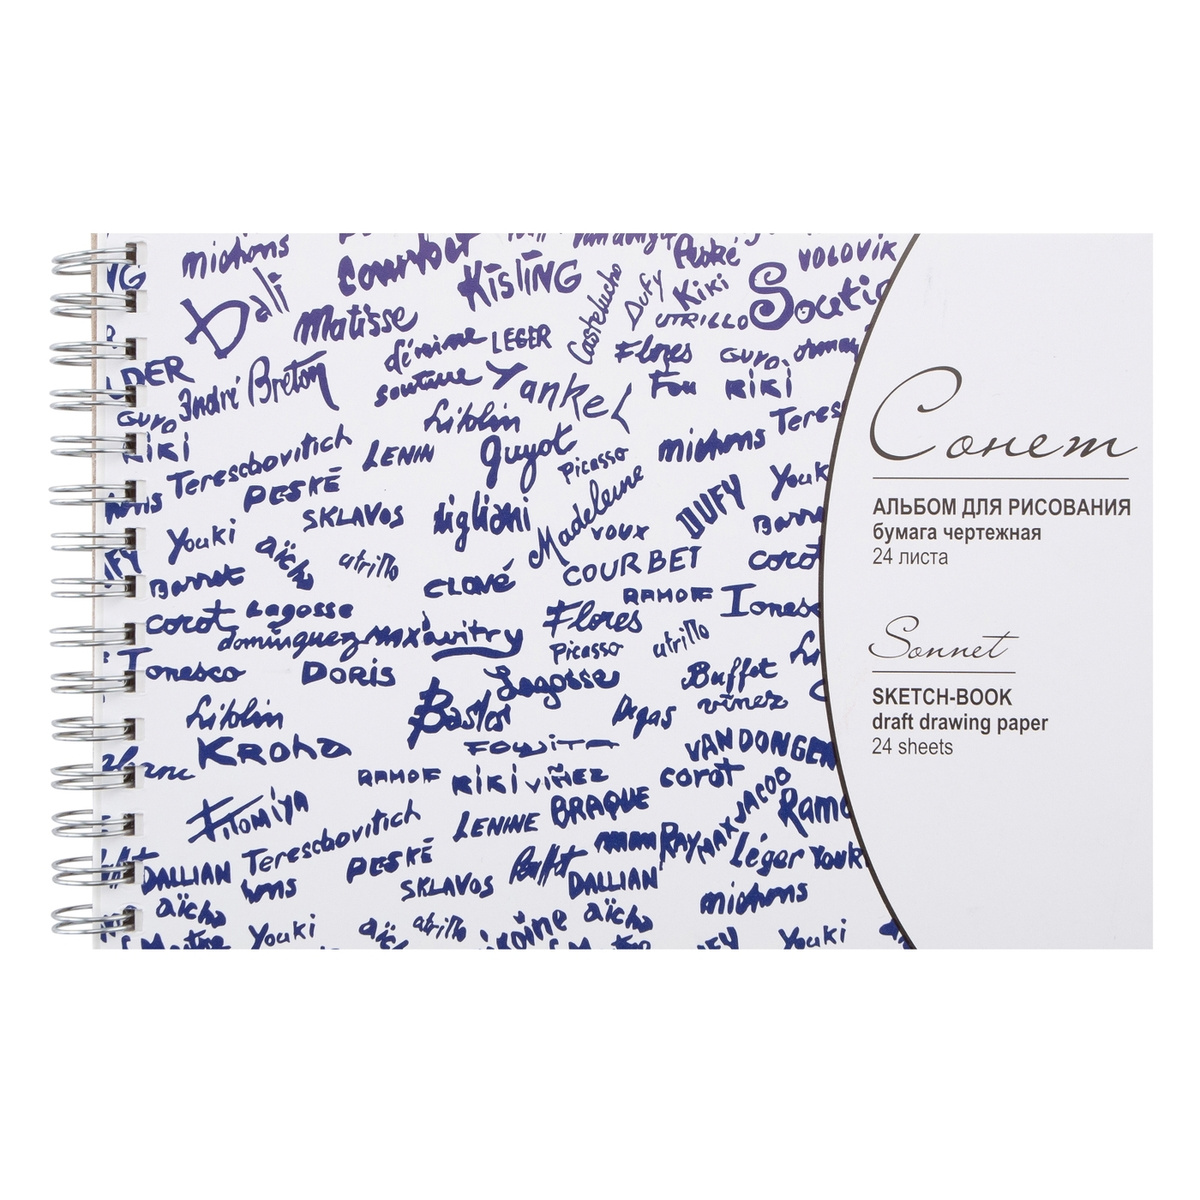 michons
Courbet
van dongen
Peské
VOLOVIK
Dali
KISLING
Castelucho
Dufy
Kiki
Soutin
Matisse
dérnime
LEGER
UTRILLO
DER
André Breton
soutine
Yankel
Flores
GUYO
GUYO
Fou
KIKI
KIKI
Liblin
Teres
Tereschovitch
LENIN
guyot
Picasso
michons
Сонет
PESKÉ
Madeleine
DUFY
Youk
АЛЬБОМ ДЛЯ РИСОВАНИЯ
SKLAVOS
VOUX
Barra
бумага чертежная
Youki
aïcho
utrillo
COURBET
corot
24 листа
Barrat
CLOVÉ
RAMOF
Ionesc
corot
Lagosse
Flores
dominguez
MAX
vitry
Picasso
utrillo
Sonnet
Ionesco
DORIS
Lagosse
Buffet
vinez
SKETCH-BOOK
Liblin
Bastos
Degas
draft drawing paper
KROHA
FOUJITA
VAN DONGEN
24 sheets
RAMOF
KIKI
VIÑEZ
corot
FITOMIYA
Tereschovitch
LENINE
BRAQUE
JACOB
Ramo
RAY
MAX
Léger
YOUK
DALLIAN
PESKÉ
Buffet
SKLAVOS
DALLIAN
michons
aïcho
aïcho
utrillo
Youki
youki